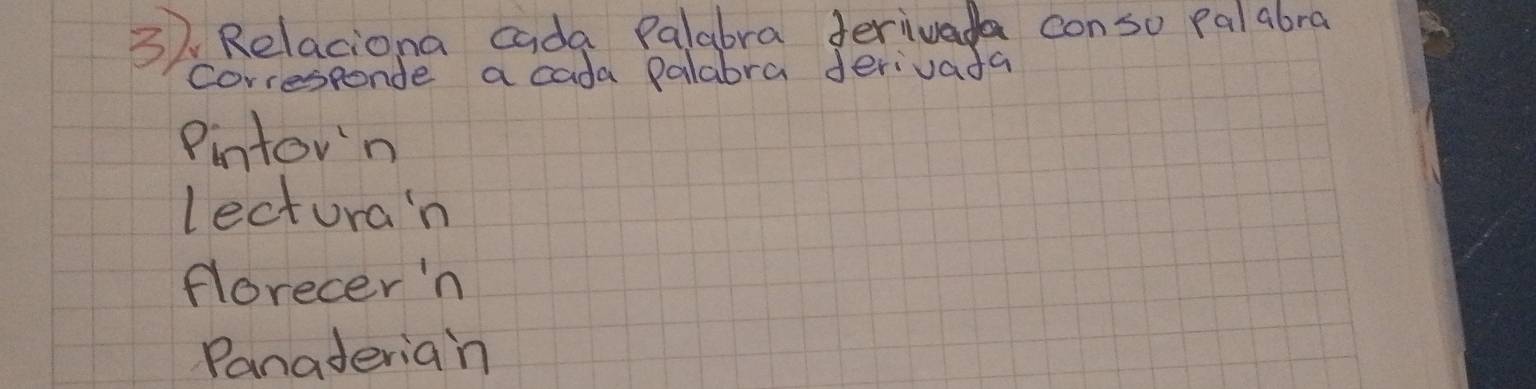 3). Relaciona cada palabra derivada con so palabra
corresponde a cada palabra derivada
Pintor'n
lectura'n
florecer'n
Panaderia'n